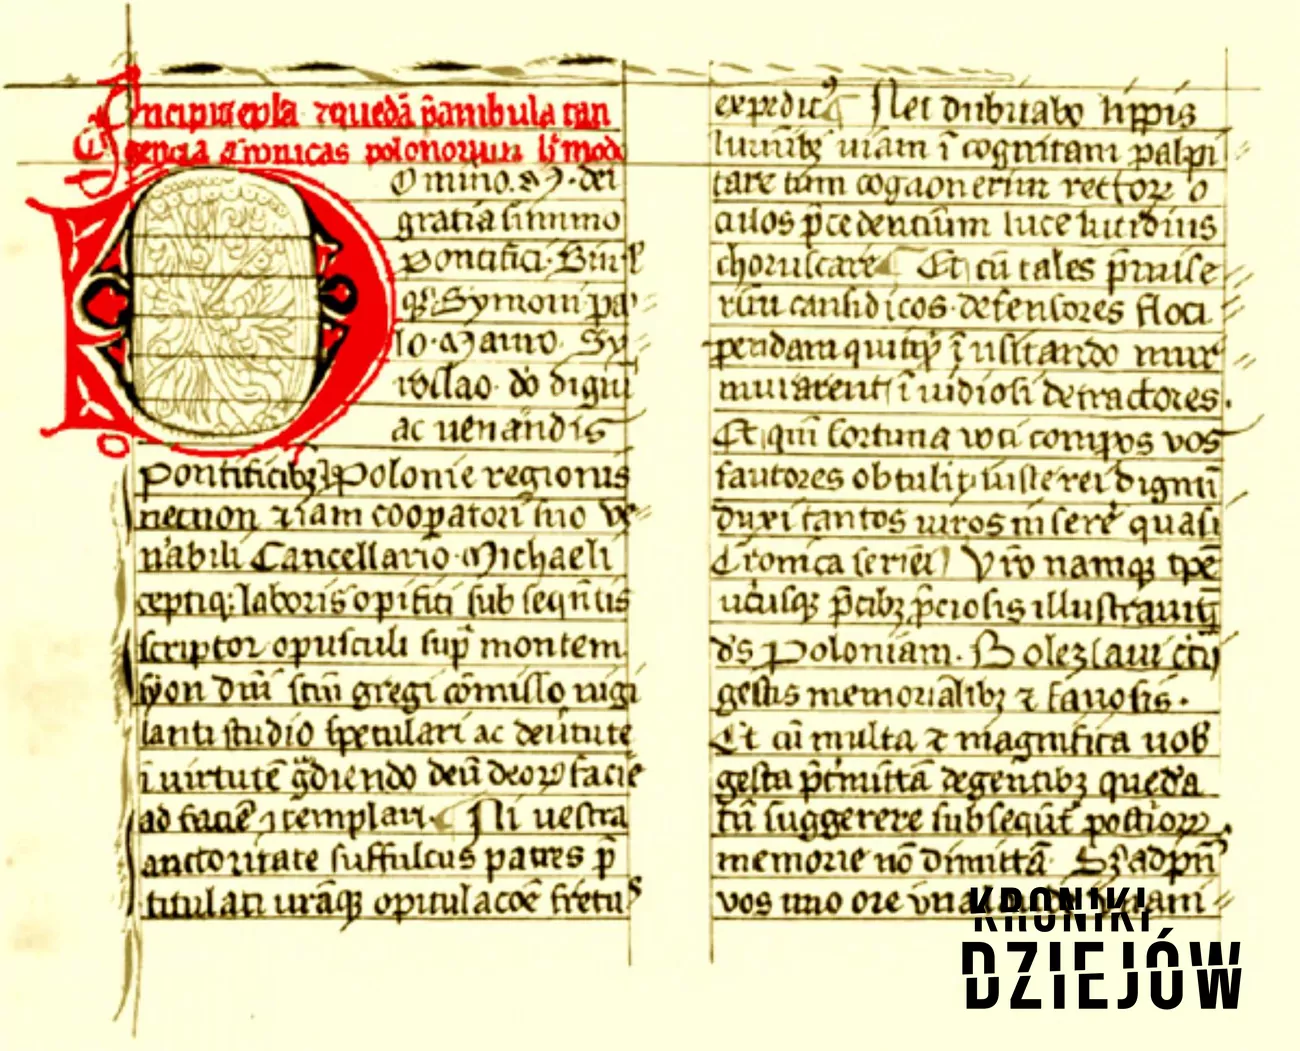 Incipit epla ⁊ quedā p̄ambula tan
gencia Cronicas polonorum
Omino. M. dei
gratia summo
Pontifici. Simłʼ
qʒ. Symoni. pa
lo. Mauro. Sy
roslao. do digni
ac uen̄andis
pontificibʒ. Polonie regionis
necnon ⁊ iam coop̱atori suo ve
n̄abili Cancellario. Michaeli
ceptiq: laboris opifici subseqn̄tis
scriptor opusculi sup̱ montem
syon dn̄i scm̄ gregi cōmisso uigi
lanti studio speculari ac de uirtute
ī uirtutē gdiendo deū deorꝝ facie
ad faciē ꝯtemplari. Ni uestra
auctoritate suffulcus patres p̄
titulati ur̄aqꝫ opitulacōe fretus
expedit Nec dubitabo lippis
luminibʒ uiam ī cognitam palpi
tare tum cognouerim rectorꝝ o
culos p̄cedentium luce lucidius
choruscare Et cū tales p̄uiſe
rim causidicos. defensores floci
pendam quitqd ī usitando mur
murarent ī uidiosi detractores.
Et qm̄ fortuna uoti compos vos
fautores obtulit, iuste rei dignū
duxi tantos uiros inserere quasi
Cronice seriei Vr̄o namqꝫ tp̄e
ur̄isqꝫ p̄cibʒ p̄ciosis illustrauit
ds̄ Poloniam. Bolezlaui tc̄ij
gestis memorialibʒ ⁊ famosis.
Et cū multa ⁊ magnifica uob̄
gesta p̄tmittā degentibʒ quedā
tn̄ suggerere subseqn̄t postiorꝝ
memorie nō dimittā. Sʒ ad pn̄s
vos uno ore
KRONIKI
DZIEJÓW